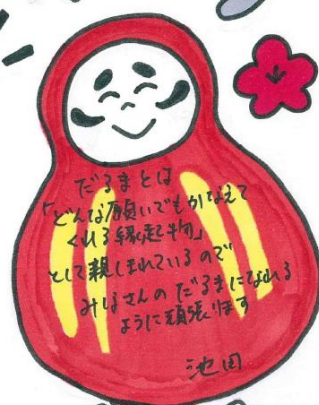 だるまとは
「どんな願いでもかなえて
くれる縁起物」
として親しまれているので
みなさんのだるまになれる
ように頑張ります
池田